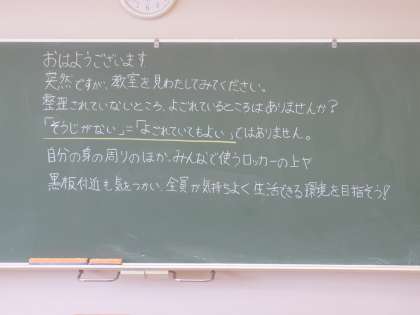 おはようございます
突然ですが、教室を見わたしてみてください。
整理されていないところ、よごれているところはありませんか？
「そうじがない」=「よごれていてもよい」ではありません。
自分の身の周りのほか、みんなで使うロッカーの上や
黒板付近も気をつかい、全員が気持ちよく生活できる環境を目指そう!